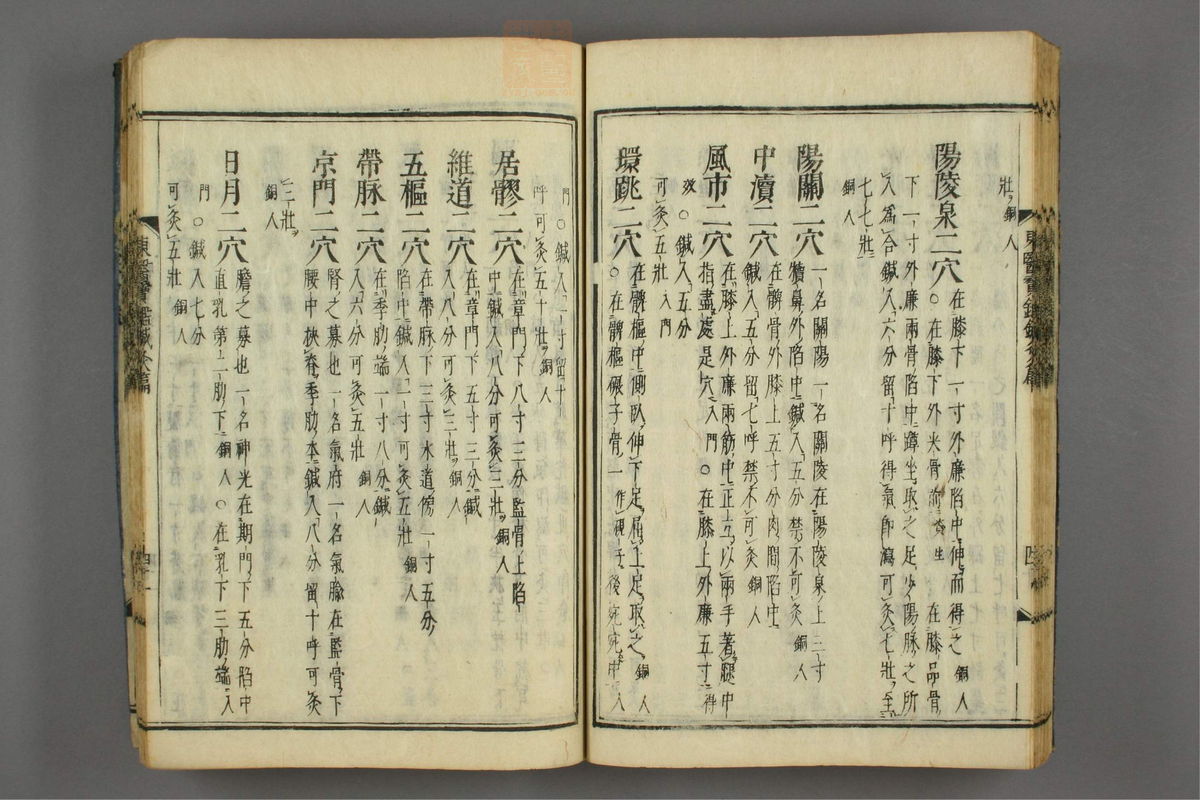 壯銅人
陽陵泉二穴在膝下一寸外廉陷中伸而得之銅人
○在膝下外尖骨前資生在膝品骨
下一寸外廉兩骨陷中蹲坐取之足少陽脉之所
入爲合鍼入六分留十呼得氣卽瀉可灸七壯至
七七壯
銅人
陽關二穴一名關陽一名關陵在陽陵泉上三寸
犢鼻外陷中鍼入五分禁不可灸銅人
中瀆二穴在髀骨外膝上五寸分肉間陷中
鍼入五分留七呼禁不可灸銅人
風市二穴在膝上外廉兩筋中正立以兩手著腿中
指盡處是穴入門○在膝上外廉五寸得
效○鍼入五分
可灸五壯入門
環跳二穴在髀樞中側臥伸下足屈上足取之銅人
○在髀樞碾子骨一作硯子後宛宛中入
門○鍼入一寸留十
呼可灸五十壯銅人
居髎二穴在章門下八寸三分監骨上陷
中鍼入八分可灸三壯銅人
維道二穴在章門下五寸三分鍼
入八分可灸三壯銅人
五樞二穴在帶脉下三寸水道傍一寸五分
陷中鍼入一寸可灸五壯銅人
帶脉二穴在季肋端一寸八分鍼
入六分可灸五壯銅人
京門二穴腎之募也一名氣府一名氣腧在監骨下
腰中挾脊季肋本鍼入八分留十呼可灸
三壯
銅人
日月二穴膽之募也一名神光在期門下五分陷中
直乳第二肋下銅人○在乳下三肋端入
門○鍼入七分
可灸五壯銅人
東醫寶鑑鍼灸篇